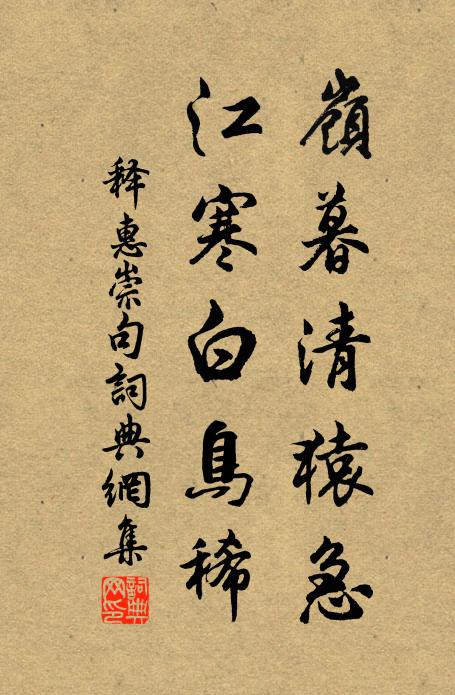 嶺暮清猿急
江寒白鳥稀
释惠崇句詞典網集
詞典网印